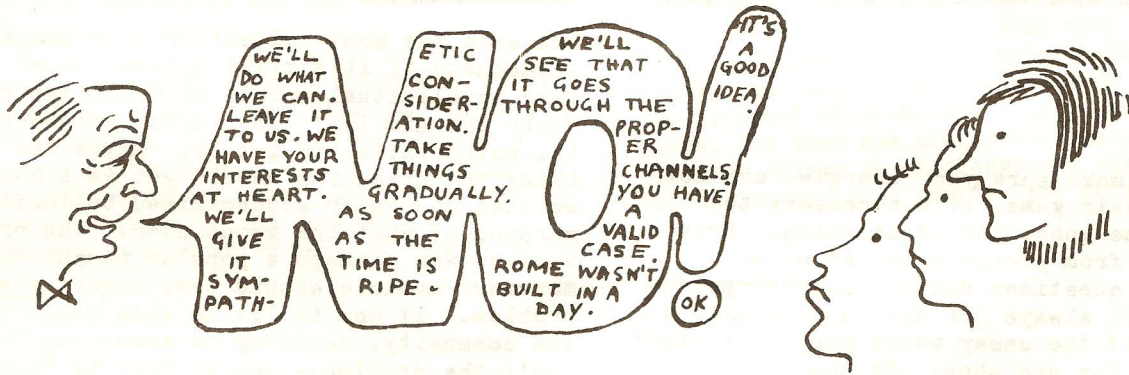 WE'LL
DO WHAT
WE CAN.
LEAVE IT
TO US. WE
HAVE YOUR
INTERESTS
AT HEART
WE'LL
GIVE
IT
SYM-
PATH-
ETIC
CON-
SIDER-
ATION.
TAKE
THINGS
GRADUALLY.
AS SOON
AS THE
TIME IS
RIPE.
WE'LL
SEE THAT
IT GOES
THROUGH THE
PROP-
ER
CHANNELS.
YOU HAVE
A
VALID
CASE.
ROME WASN'T
BUILT IN A
DAY.
IT'S
A
GOOD
IDEA.
OK